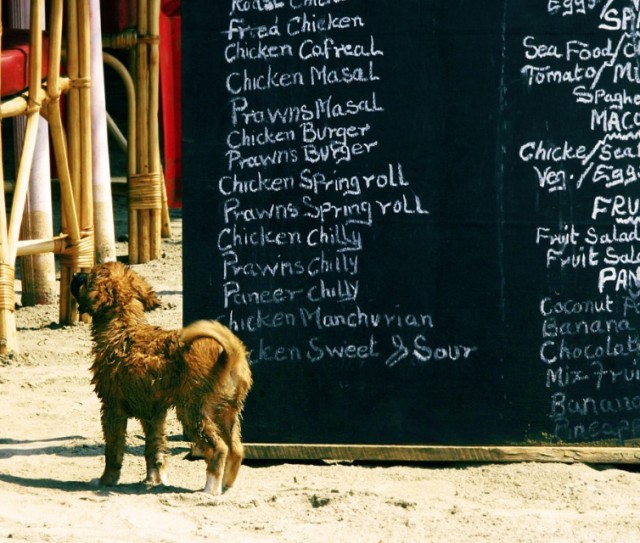 Fried Chicken
Chicken Cafreal
Chicken Masal
Prawns Masal
Chicken Burger
Prawns Burger
Chicken Springroll
Prawns Springroll
Chicken Chilly
Prawns Chilly
Paneer Chilly
Chicken Manchurian
cken Sweet & Sour
Eggs/
SPA
Sea Food/C
Tomato/Mi
Spaghe
MACC
Chicke/Seaf
Veg./Eggs
FRU
Fruit Salad
Fruit Sala
PAN
Coconut
Banana
Chocolat
Mix-Frui
Banana
Pineapp